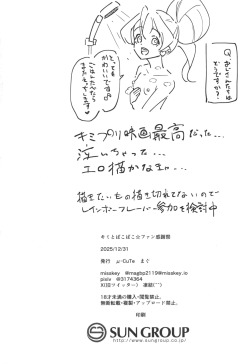 Q おじさんたては
どうですか?
とっても
かわいいです。
ごはんたんたら
またイっちゃいます
キミプリ映画最高だった…
泣いちゃった…
エロ描かなきゃ…
描きたいもの描き切れてないので
レインボーフレーバー参加を検討中
キミとぱこぱこ☆ファン感謝祭
2025/12/31
発行 μ-CuTe まぐ
misskey @magbp2119@misskey.io
pixiv @3174364
X(旧ツイッター) 凍結(^^)
18才未満の購入・閲覧禁止。
無断転載・複製・アップロード禁止。
印刷
SUN GROUP
http://www.sungroup.co.jp/